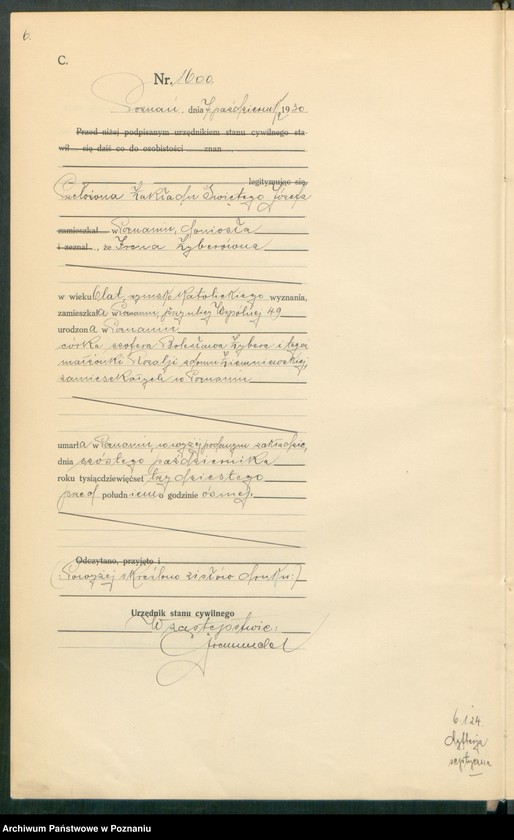 6.
C.
Nr. 1600
Poznań, dnia 7 października 1930
Przed niżej podpisanym urzędnikiem stanu cywilnego sta
wił się dziś co do osobistości znan
legitymując się
Przełożona Zakładu Świętego Józefa
zamieszkał w Poznaniu, doniosła
i zeznał, że Irena Zyberówna
w wieku 6 lat, rzymsko katolickiego wyznania,
zamieszkała w Poznaniu, przy ulicy Wspólnej 49
urodzona w Poznaniu
córka szofera Bolesława Zybera i tegoż
małżonki Rozalji z domu
zamieszkałych w Poznaniu
umarła w Poznaniu, w wyżej podanym zakładzie,
dnia szóstego października
roku tysiąc dziewięćset trzydziestego
przed południem o godzinie ósmej.
Odczytano, przyjęto i
Powyżej skreślono słów druku.
Urzędnik stanu cywilnego
W zastępstwie:
6.1.24.
dyfterja
septyczna
Archiwum Państwowe w Poznaniu